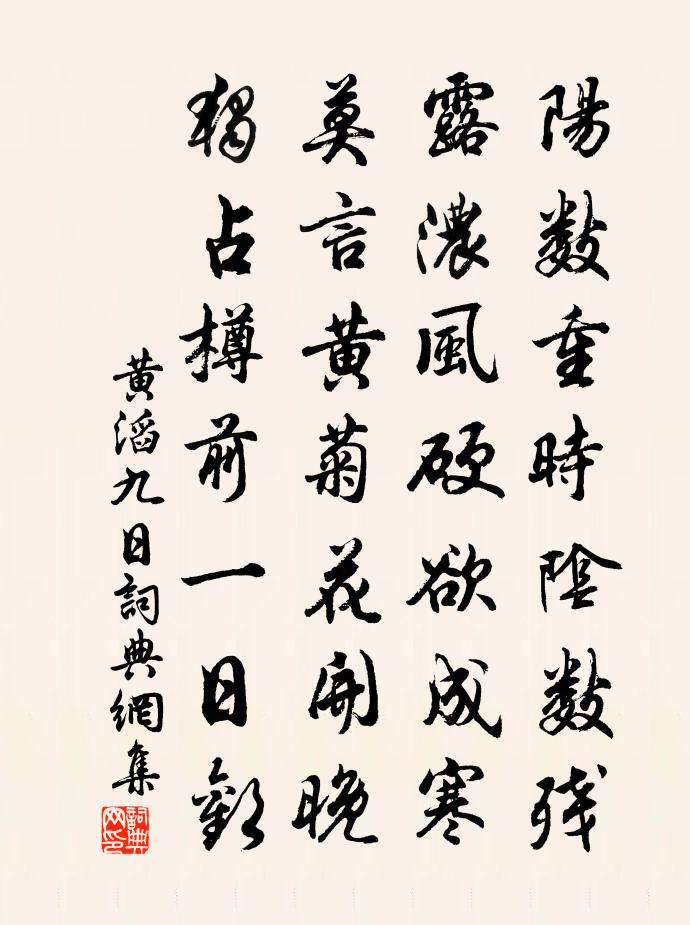 陽數重時陰數殘
露濃風硬欲成寒
莫言黃菊花開晚
獨占樽前一日歡
黃滔九日詞典網集
詞典網印